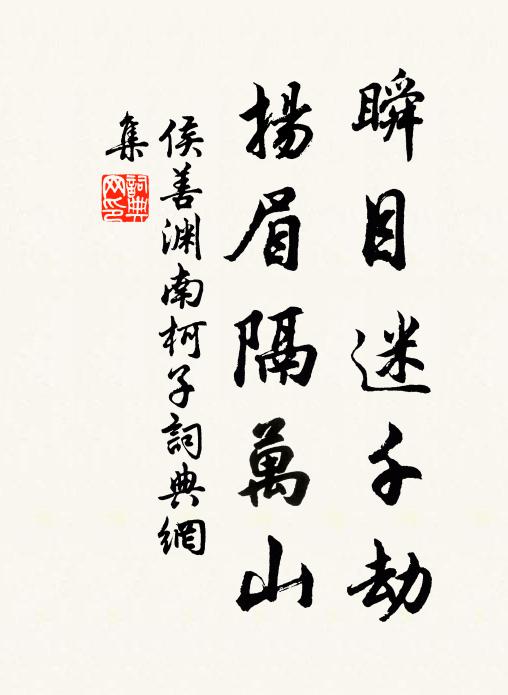 瞬目迷千劫
揚眉隔萬山
侯善淵南柯子詞典網
集
詞典網印